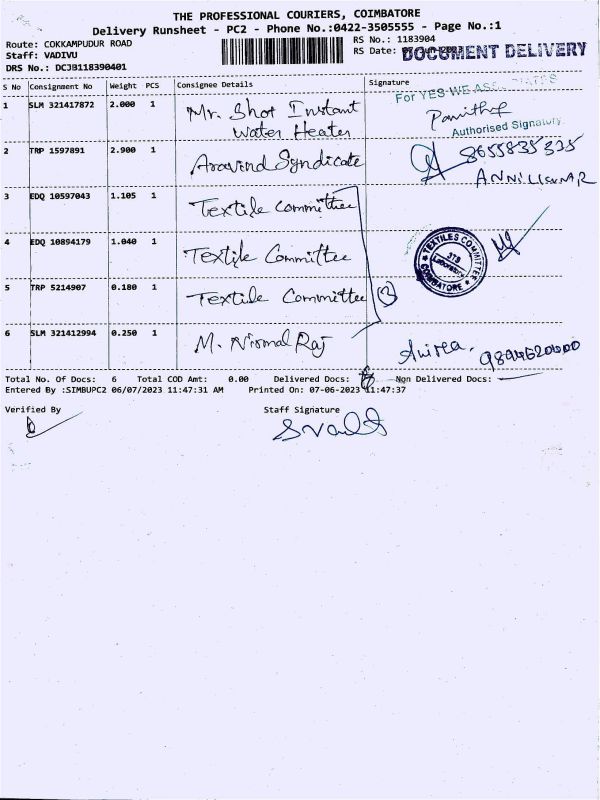 THE PROFESSIONAL COURIERS, COIMBATORE
Delivery Runsheet - PC2 - Phone No.:0422-3505555 - Page No.:1
Route: COKKAMPUDUR ROAD
Staff: VADIVU
DRS No.: DCJB118390401
RS No.: 1183904
RS Date: 07-Jun-2023
DOCUMENT DELIVERY
S No Consignment No Weight PCS Consignee Details Signature
For YES WE ASSOCIATES
1 SLM 321417872 2.000 1 Mr. Shot Instant
Water Heater
Authorised Signatory
2 TRP 1597891 2.900 1 Aravind Syndicate 8655835335
3 EDQ 10597043 1.105 1 Textile Committee
4 EDQ 10894179 1.040 1 Textile Committee
TEXTILES COMMITTEE
Laboratory
COIMBATORE
5 TRP 5214907 0.180 1 Textile Committee (3)
6 SLM 321412994 0.250 1 M. Nirmal Raj
Total No. Of Docs: 6 Total COD Amt: 0.00 Delivered Docs: Non Delivered Docs:
Entered By :SIMBUPC2 06/07/2023 11:47:31 AM Printed On: 07-06-2023 11:47:37
Verified By Staff Signature